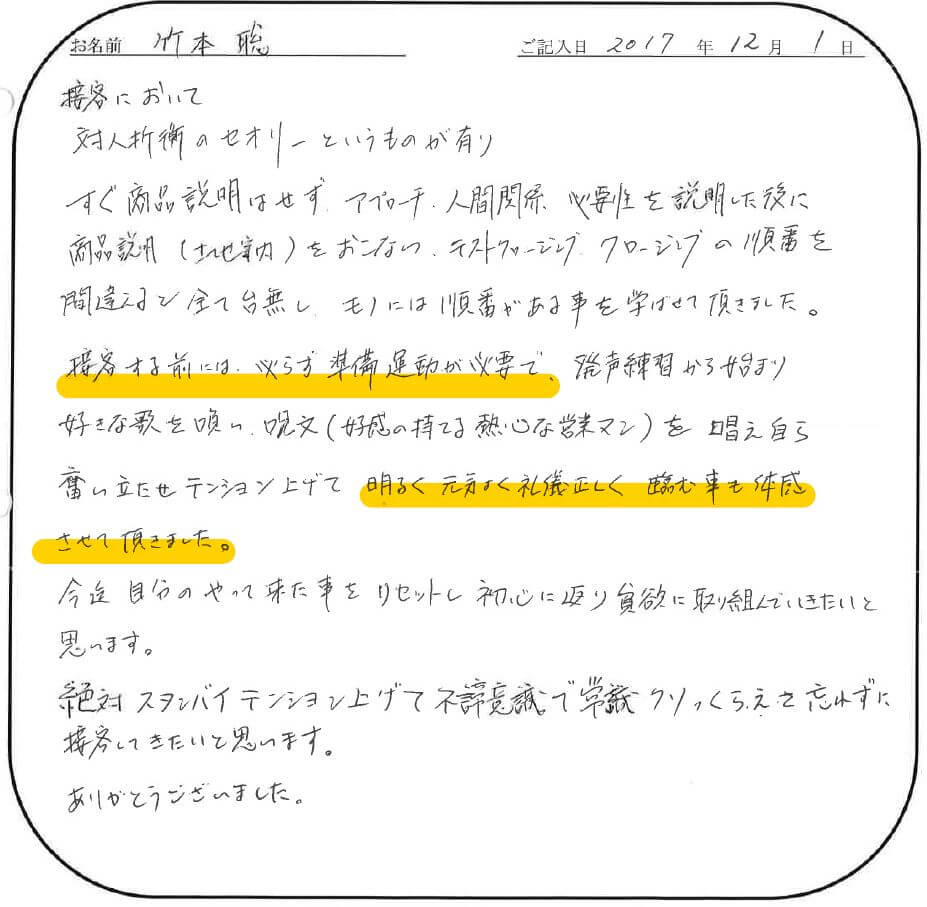 お名前 竹本 聡 ご記入日 2017 年 12 月 1 日
接客において
対人折衝のセオリーというものが有り
すぐ商品説明はせず、アプローチ、人間関係、必要性を説明した後に
商品説明()をおこない、テストクロージング、クロージングの順番を
間違えると全て台無し、モノには順番がある事を学ばせて頂きました。
接客する前には、必らず準備運動が必要で、発声練習から始まり
好きな歌を唄い、呪文(好感の持てる熱心な営業マン)を唱え自ら
奮い立たせテンション上げて明るく元気よく礼儀正しく臨む事も体感
させて頂きました。
今迄自分のやって来た事をリセットし初心に返り貪欲に取り組んでいきたいと
思います。
絶対スタンバイテンション上げて不諦意識で常識クソっくらえを忘れずに
接客してきたいと思います。
ありがとうございました。